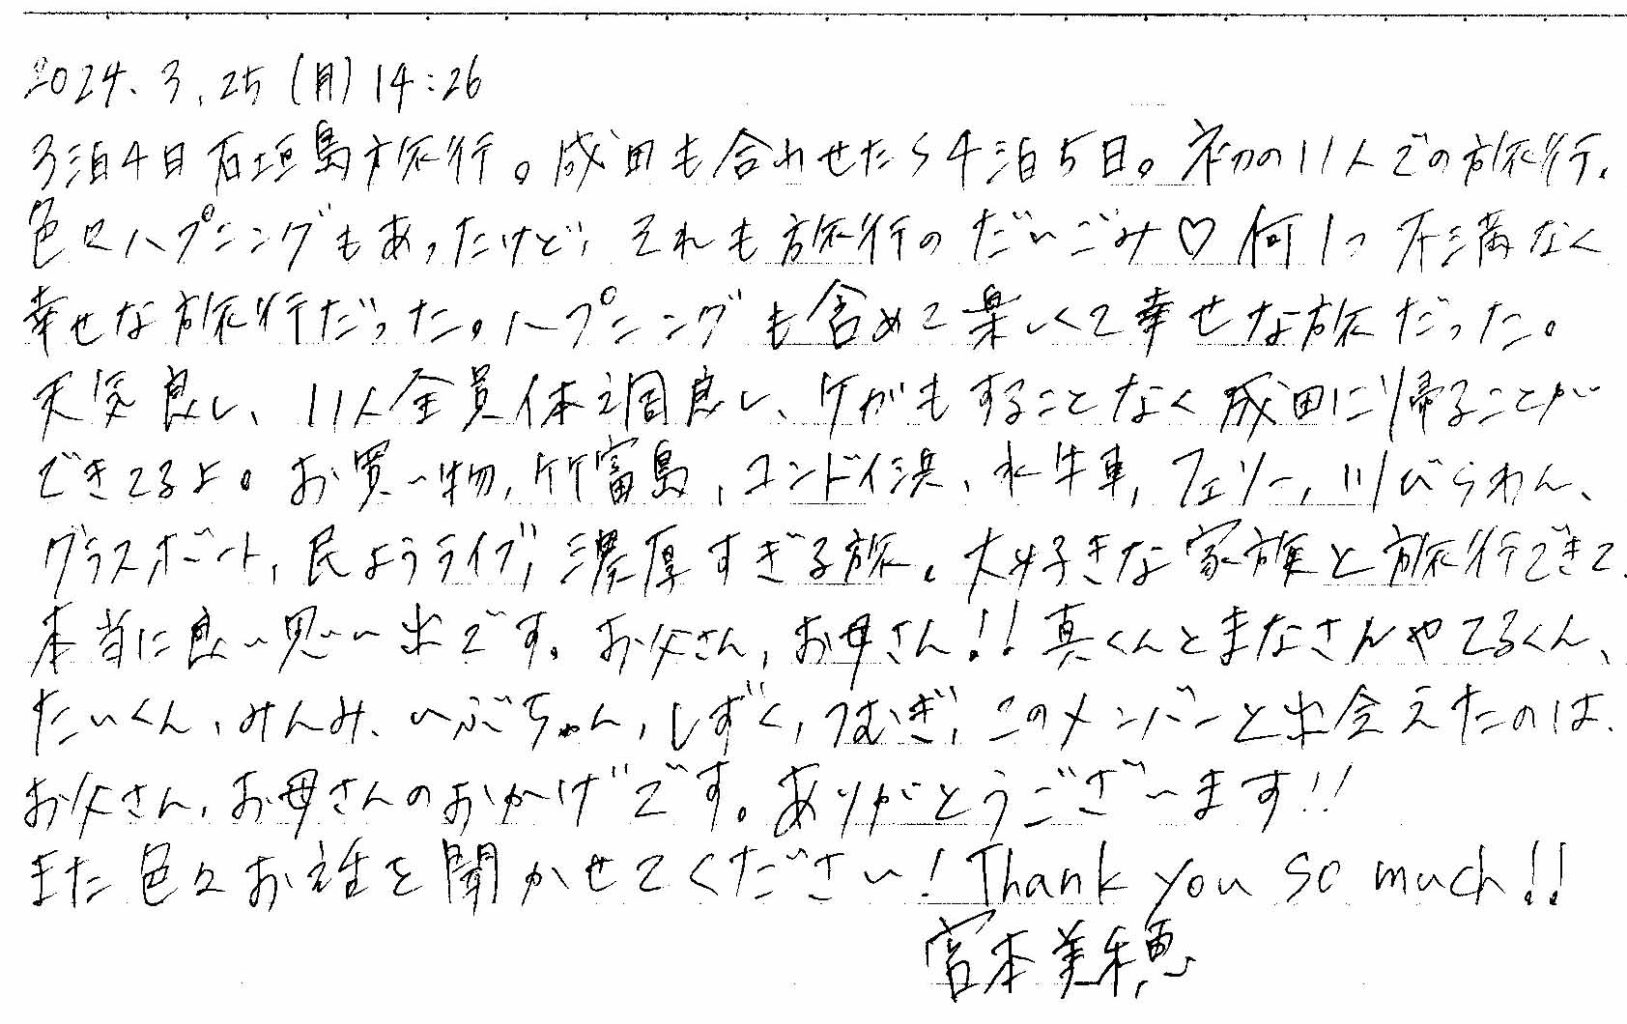 2024.3.25(月)14:26
3泊4日石垣島旅行。成田も合わせたら4泊5日。初の11人での旅行。
色々ハプニングもあったけど、それも旅行のだいごみ♡何1つ不満なく
幸せな旅行だった。ハプニングも含めて楽しくて幸せな旅だった。
天気良し、11人全員体調良し、ケガもすることなく成田に帰ることが
できてるよ。お買い物,竹富島,コンドイ浜,水牛車,フェリー,川びらわん、
グラスボート,民ようライブ,濃厚すぎる旅。大好きな家族と旅行できて、
本当に良い思い出です。お父さん,お母さん!!真くんとまなさんやてるくん、
たいくん,みんみ、いぶちゃん,しずく,つむぎ,このメンバーと出会えたのは、
お父さん,お母さんのおかげです。ありがとうございます!!
また色々お話を聞かせてください!Thank you so much!!
宮本美穂